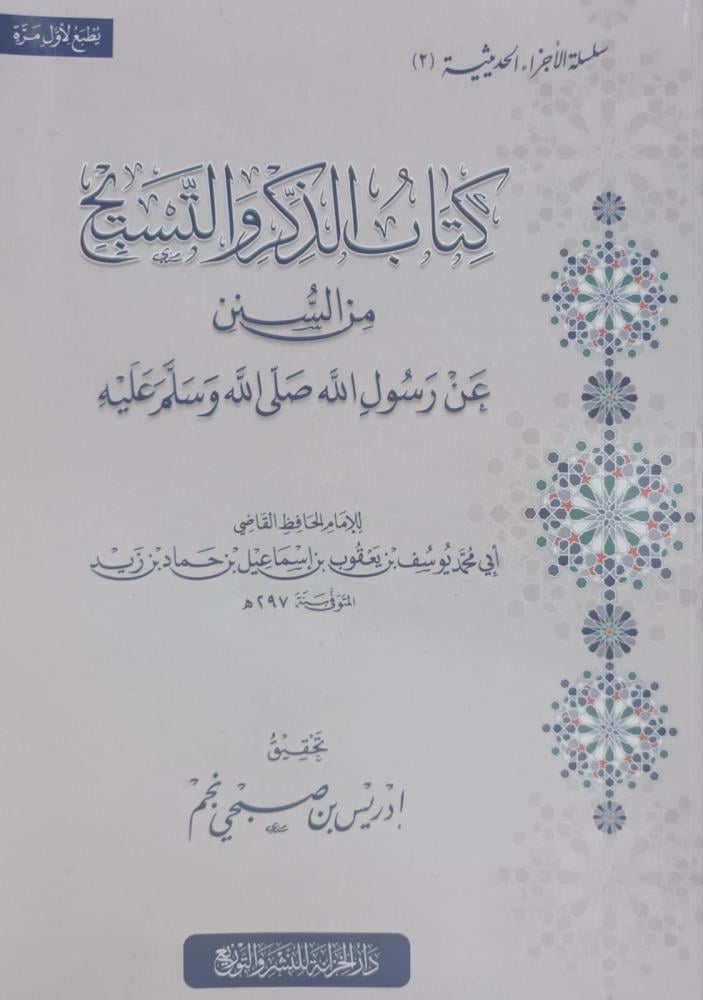 يُطْبَعُ لِأَوَّلِ مَرَّة
سلسلة الأجزاء الحديثية (٢)
كِتَابُ الذِّكْرِ وَالتَّسْبِيحِ
مِنَ السُّنَنِ
عَنْ رَسُولِ اللَّه صَلَّى اللَّه وَسَلَّمَ عَلَيْهِ
لِلإِمَامِ الحَافِظِ القَاضِي
أَبِي مُحَمَّد يُوسُف بْن يَعْقُوب بْن إِسْمَاعِيل بْن حَمَاد بْن زَيْد
المتَوَفَّى سَنَة ٢٩٧ هـ
تَحْقِيقُ
إدريس بن صبحي نجم
دَارُ الخِزَانَةِ لِلنَّشْرِ وَالتَّوْزِيعِ